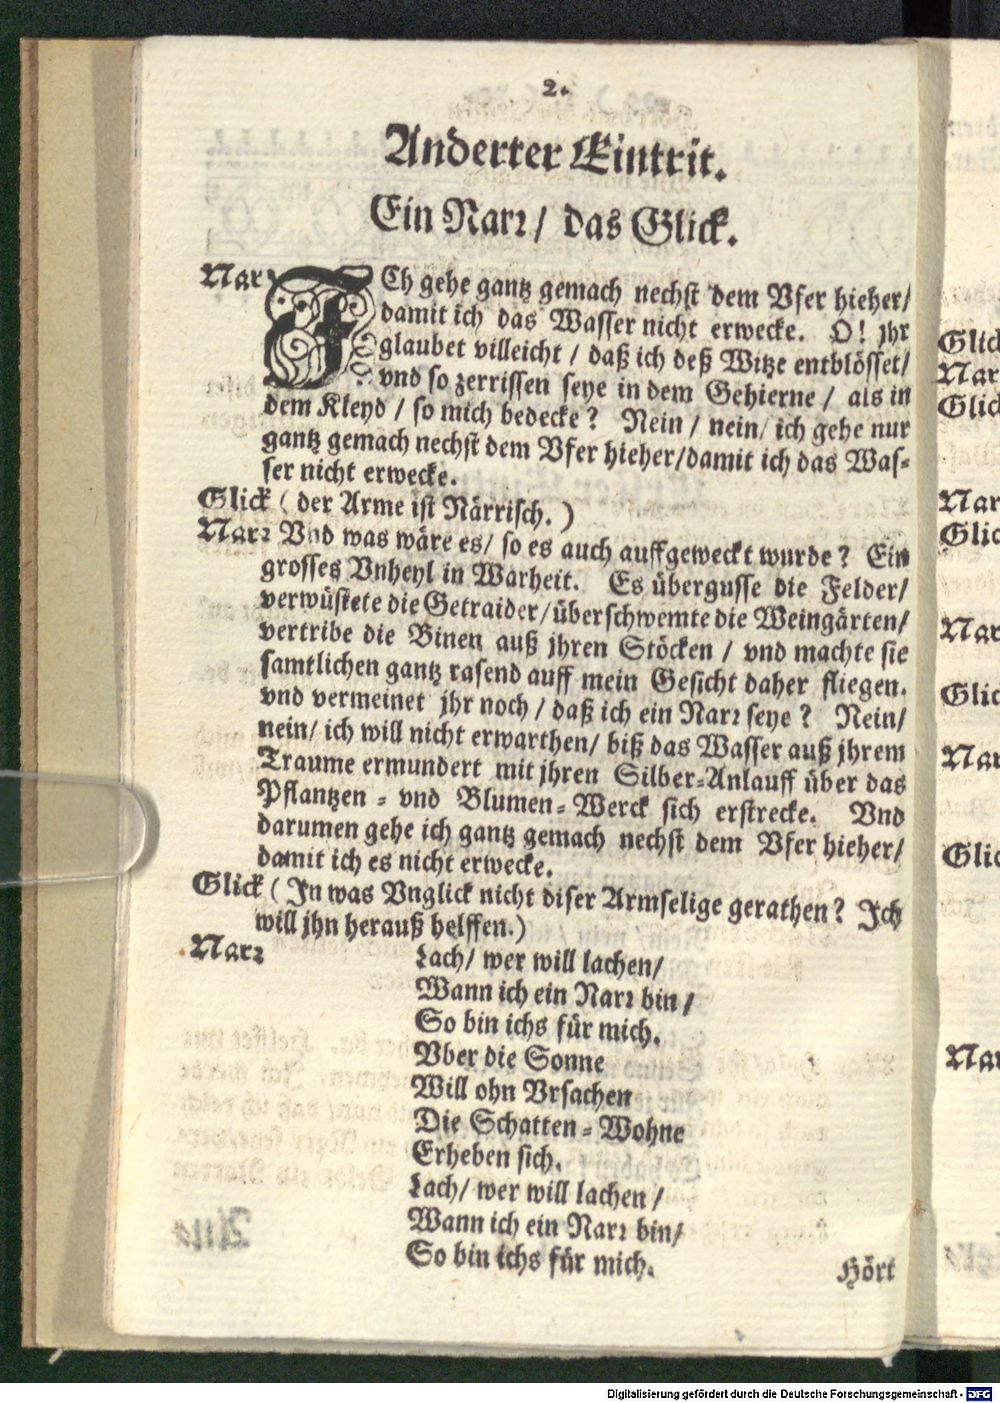 2.
Anderter Eintrit.
Ein Narr / das Glick.
Nar ICh gehe gantz gemach nechst dem Vfer hieher/
damit ich das Wasser nicht erwecke. O! jhr
glaubet villeicht / daß ich deß Witze entblösset/
vnd so zerrissen seye in dem Gehierne / als in
dem Kleyd / so mich bedecke? Nein / nein/ ich gehe nur
gantz gemach nechst dem Vfer hieher/damit ich das Was-
ser nicht erwecke.
Glick ( der Arme ist Närrisch. )
Narr Vnd was wäre es/ so es auch auffgeweckt wurde? Ein
grosses Vnheyl in Warheit. Es übergusse die Felder/
verwüstete die Getraider/überschwemte die Weingärten/
vertribe die Binen auß jhren Stöcken / vnd machte sie
samtlichen gantz rasend auff mein Gesicht daher fliegen.
vnd vermeinet jhr noch / daß ich ein Narr seye? Nein/
nein/ ich will nicht erwarthen/ biß das Wasser auß jhrem
Traume ermundert mit jhren Silber-Anlauff über das
Pflantzen - vnd Blumen-Werck sich erstrecke. Vnd
darumen gehe ich gantz gemach nechst dem Vfer hieher/
damit ich es nicht erwecke.
Glick ( In was Vnglick nicht diser Armselige gerathen? Ich
will jhn herauß helffen.)
Narr Lach/ wer will lachen/
Wann ich ein Narr bin /
So bin ichs für mich.
Vber die Sonne
Will ohn Vrsachen
Die Schatten-Wohne
Erheben sich.
Lach/ wer will lachen /
Wann ich ein Narr bin/
So bin ichs für mich.
Hört
Glic
Nar
Glic
Nar
Glic
Nar
Glic
Nar
Glic
Nar
Digitalisierung gefördert durch die Deutsche Forschungsgemeinschaft - DFG